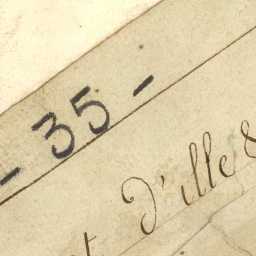 - 35 -
d'ille &